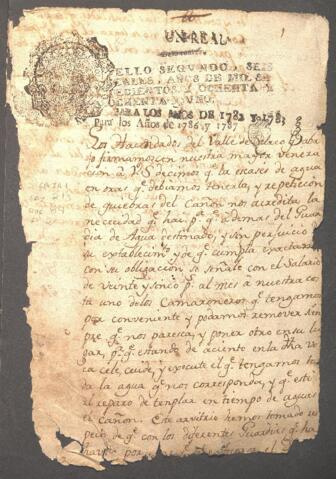 1
UN REAL
SELLO SEGUNDO, SEIS
REALES, AÑOS DE MIL SE-
TECIENTOS, Y OCHENTA Y
OCHENTA Y UNO.
PARA LOS AÑOS DE 1782 Y 1783
Para los Años de 1786, y 1787
Los Hacendados del Valle de
firmamos con nuestra mayor venera
cion à VS decimos qᵉ la escases de agua
en oras qᵉ debiamos tenerla, y repeticion
de quiebras del Cañon nos acredita la
necesidad qᵉ hai pᵃ qᵉ ademas del Guar
dia de Agua destinado, y sin perjuicio de
su establecimᵗᵒ y de qᵉ cumpla exactamᵗᵉ
con su obligacion se señale con el Salario
de veinte y sinco pˢ al mes à nuestra cos
ta uno de los Camaroneros qᵉ tengamos
por conveniente y podamos remover siem
pre qᵉ nos paresca, y poner otro en su lu
gar, pᵃ qᵉ estando de aciento en la dha
cele, cuide, y execute el qᵉ tengamos to
da la agua qᵉ nos corresponda, y qᵉ esté
al reparo de templar en tiempo de aguas
el Cañon. Este arvitrio hemos tomado res
pecto de qᵉ con los diferentes Guardias qᵉ ha